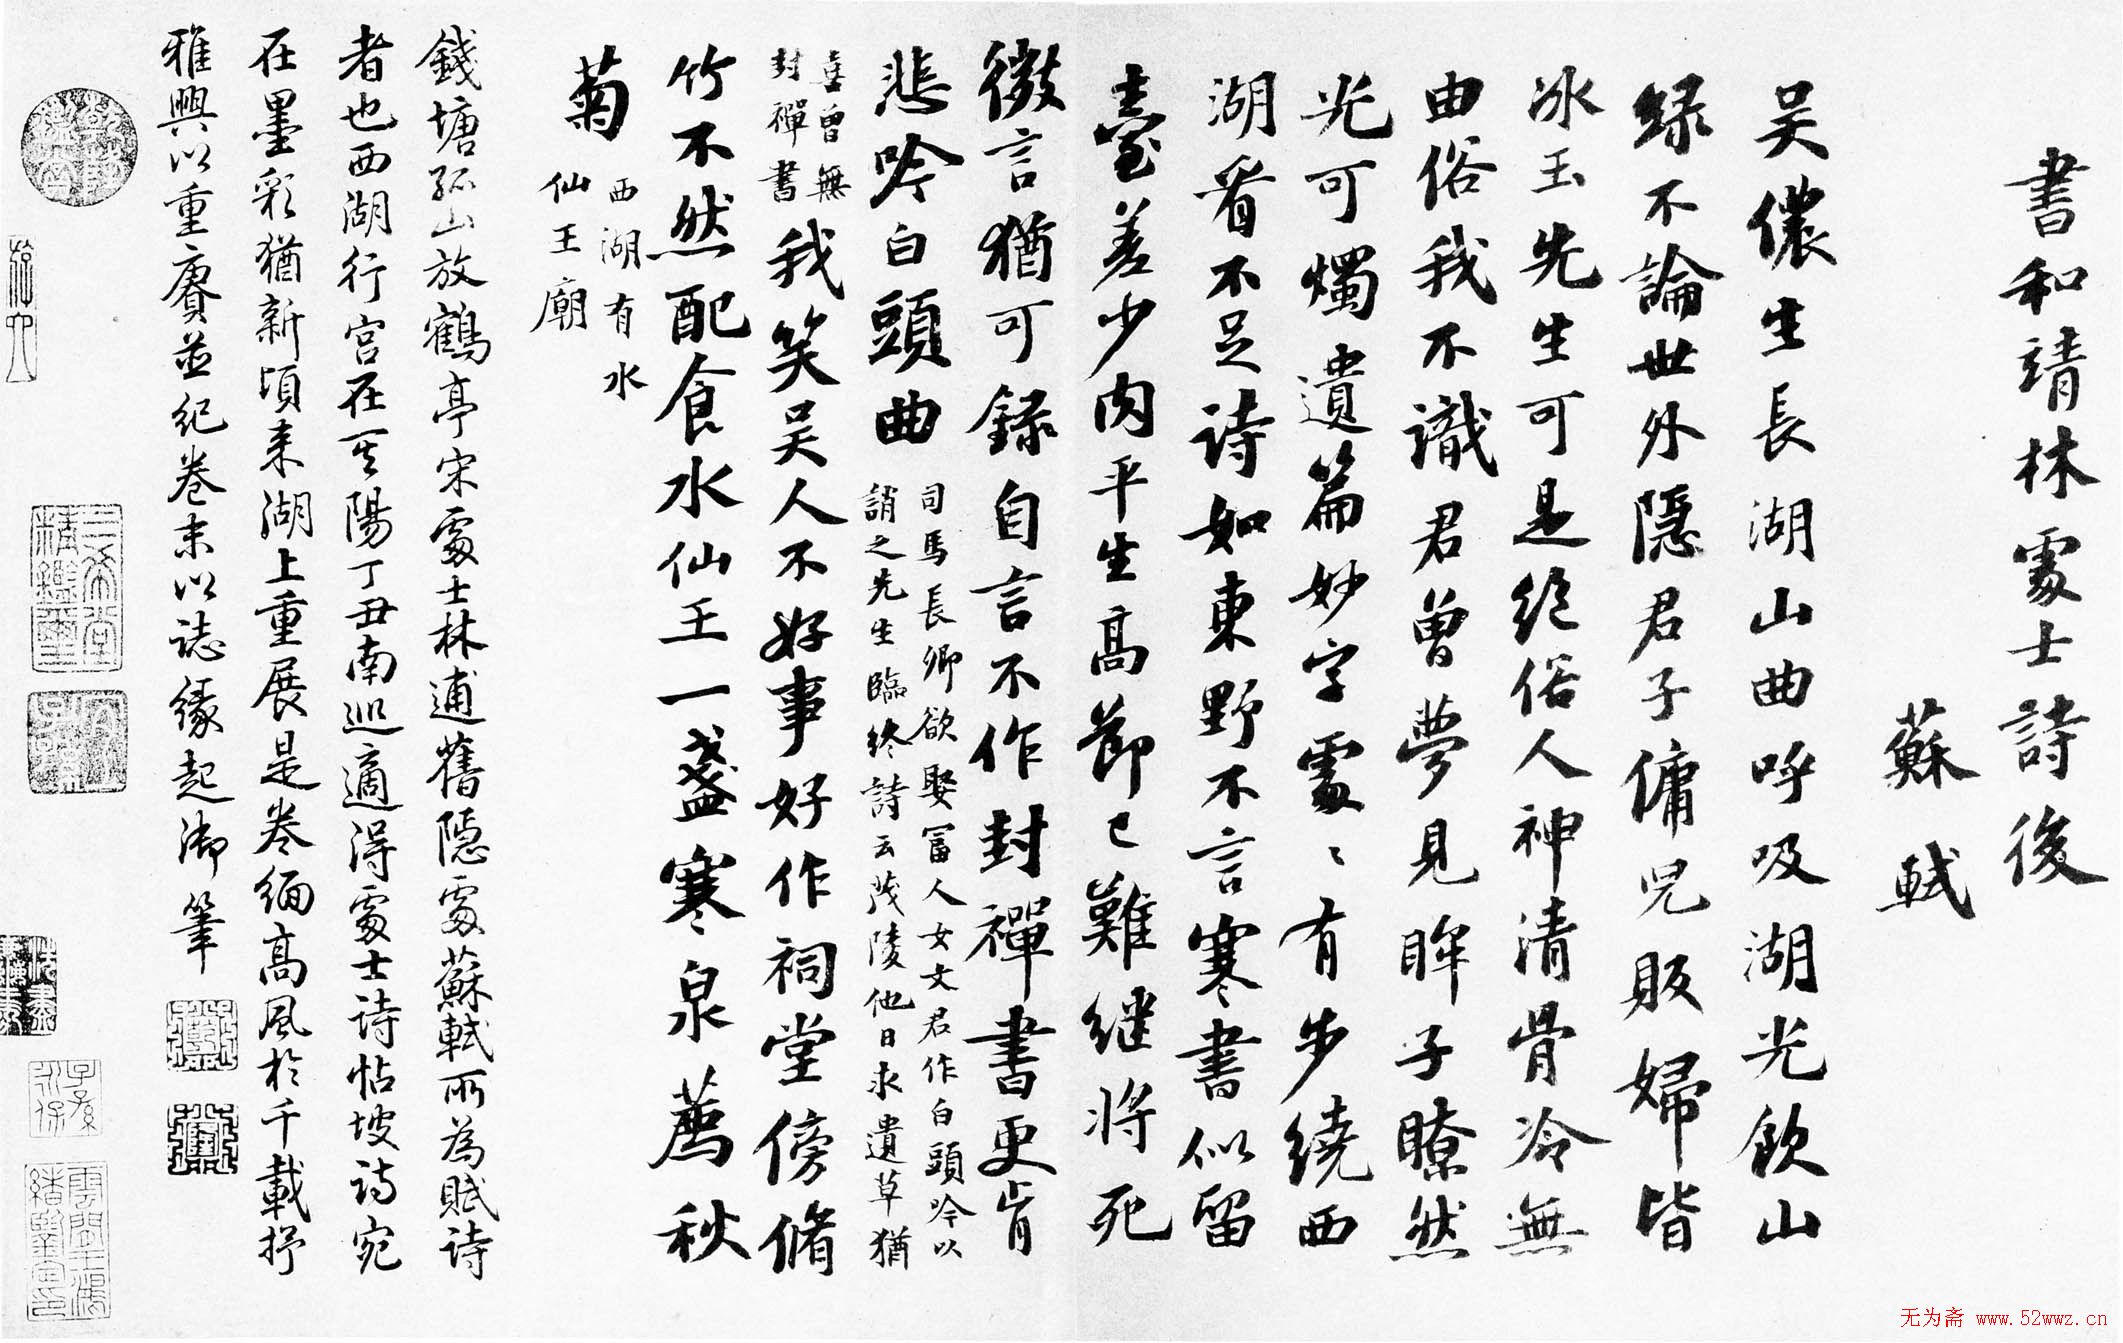 書和靖林處士詩後
蘇軾
吴儂生長湖山曲呼吸湖光飲山
緑不論世外隱君子傭兒販婦皆
冰玉先生可是絶俗人神清骨冷無
由俗我不識君曾夢見眸子瞭然
光可燭遺篇妙字處〻有步繞西
湖看不足詩如東野不言寒書似留
臺差少肉平生高節已難繼將死
微言猶可録自言不作封禪書更肯
悲吟白頭曲
司馬長卿欲娶富人女文君作白頭吟以
誚之先生臨終詩云茂陵他日求遺草猶
喜曾無
封禪書
我笑吴人不好事好作祠堂傍脩
竹不然配食水仙王一盞寒泉薦秋
菊
西湖有水
仙王廟
錢塘孤山放鶴亭宋處士林逋舊隱處蘇軾所為賦詩
者也西湖行宫在其陽丁丑南巡適得處士詩帖坡詩宛
在墨彩猶新頃来湖上重展是卷緬高風於千載抒
雅興以重賡並紀卷末以誌緣起御筆
乾隆鑑賞
三希堂精鑑璽
宜子孫
子孫永保
雲間王鴻緒鑒定印
无为斋 www.52wwz.cn